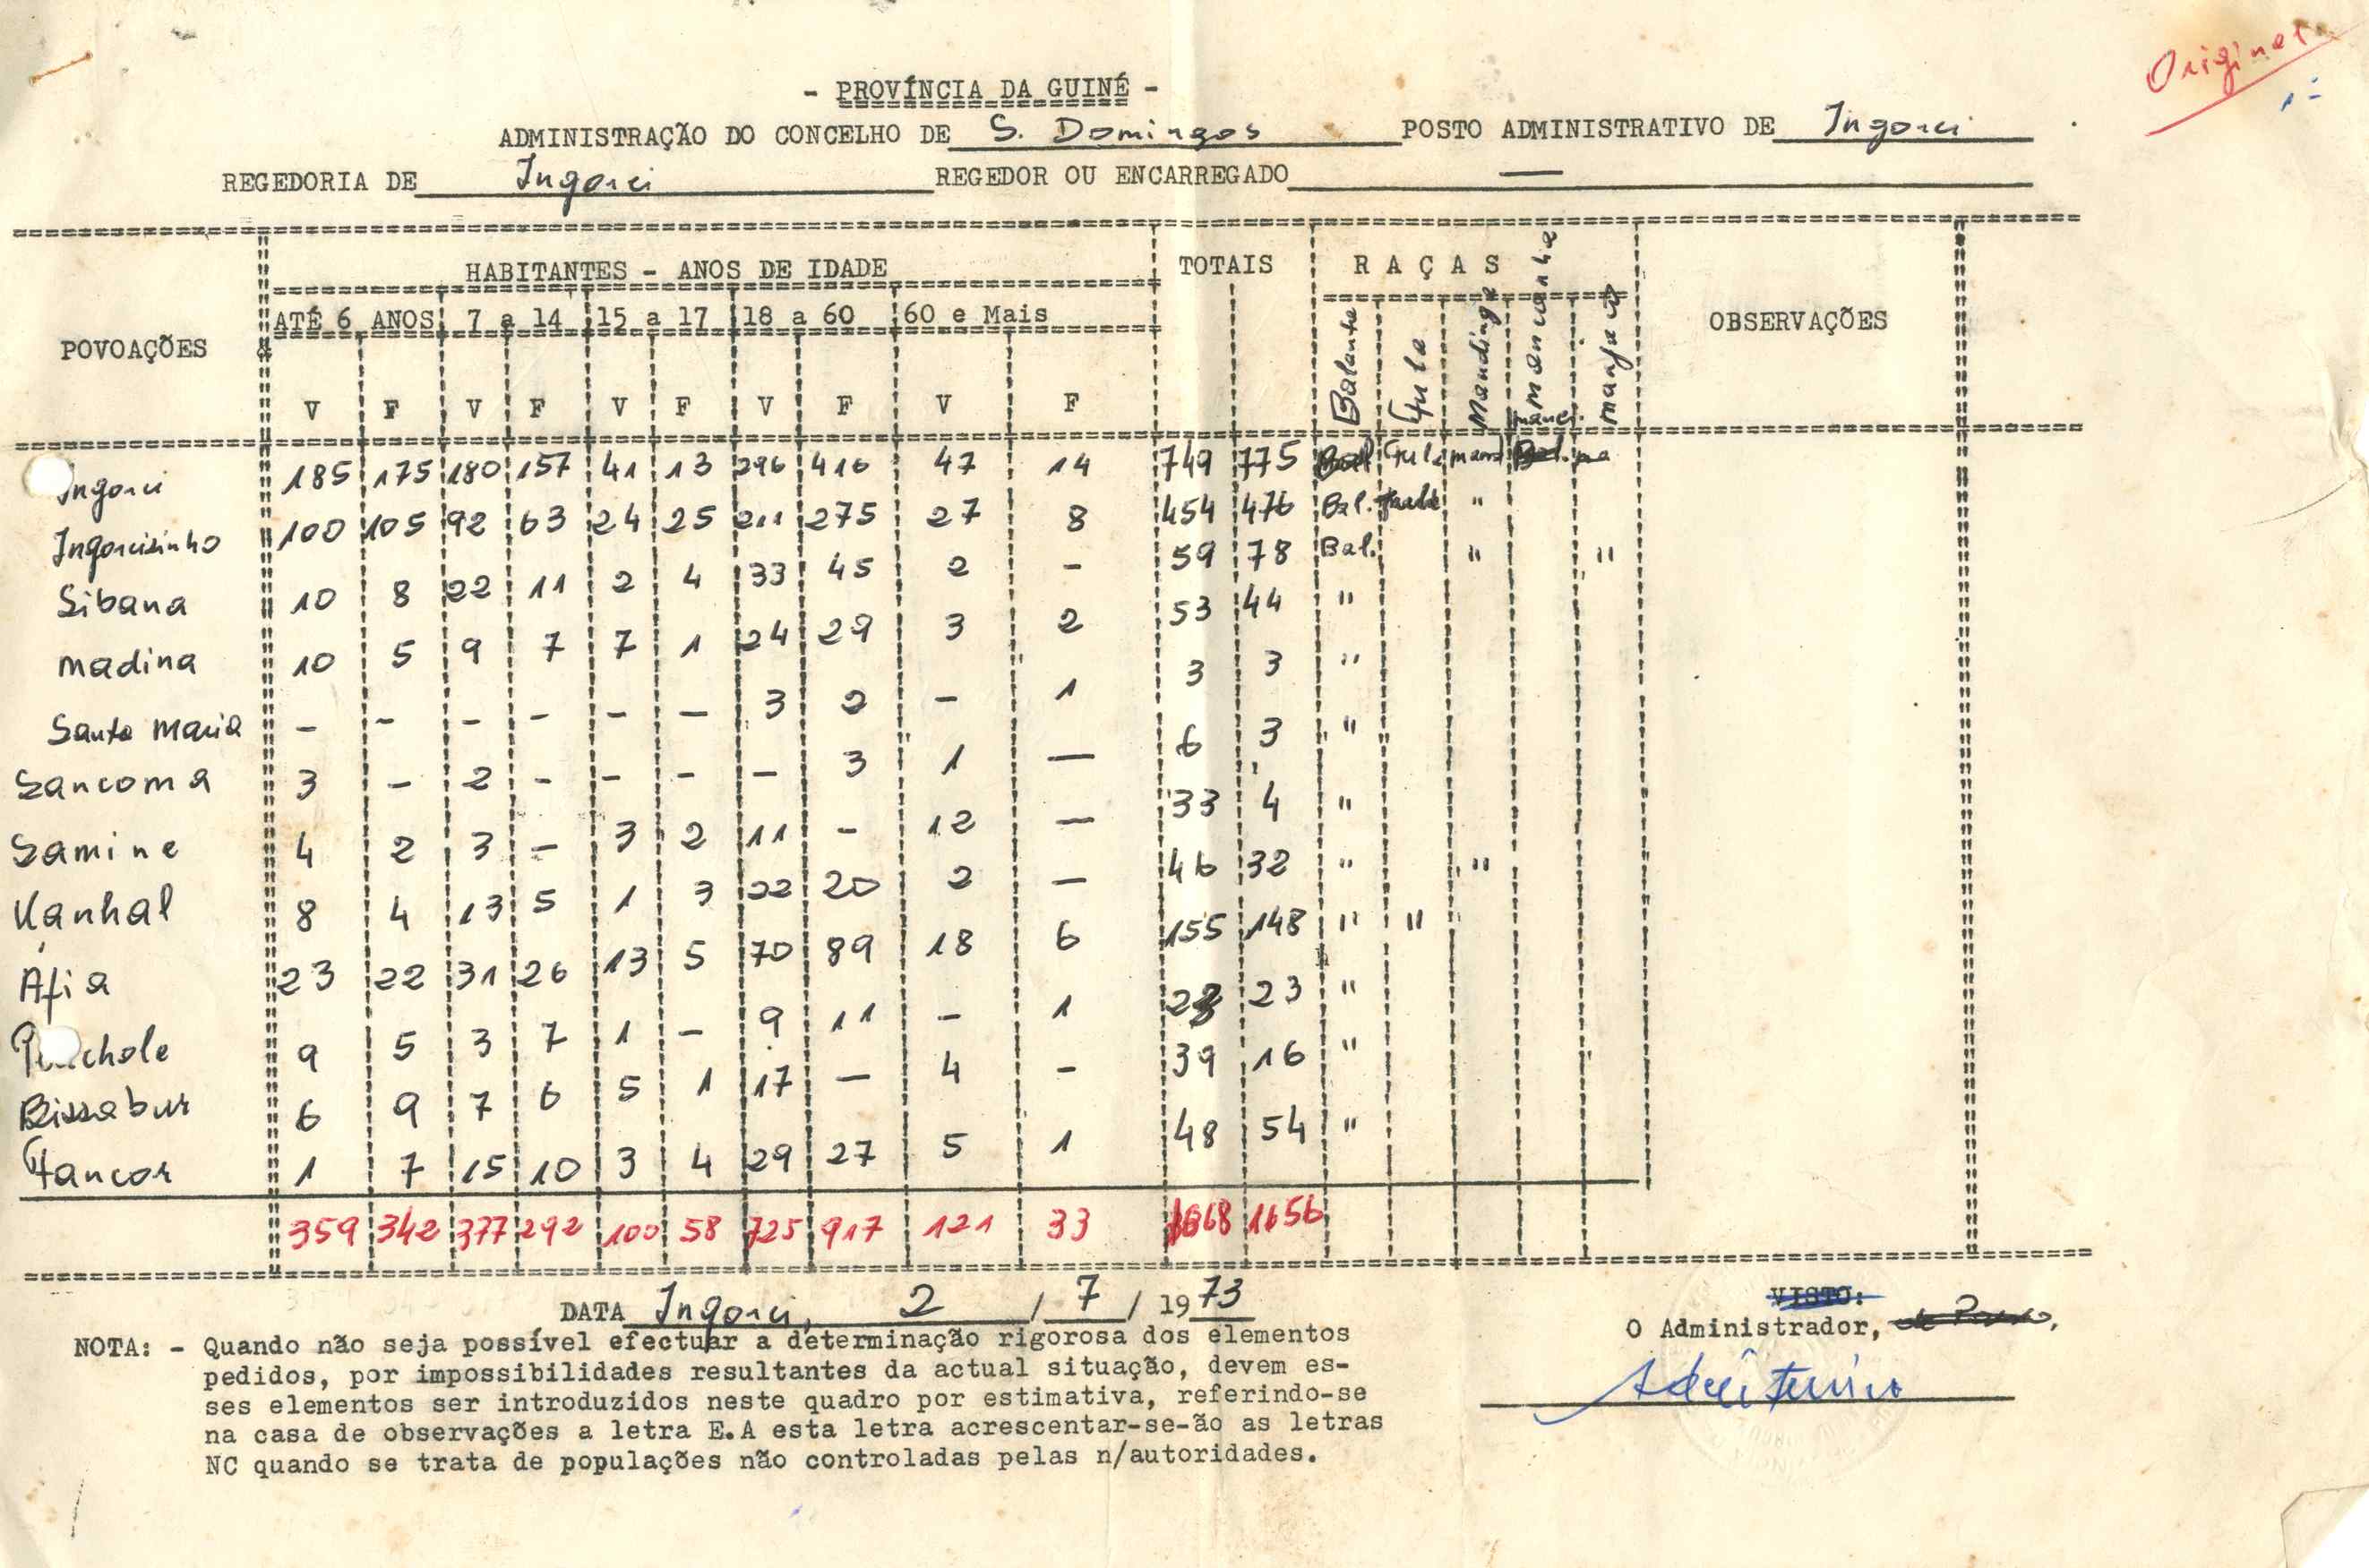 Original
1-
- PROVÍNCIA DA GUINÉ -
ADMINISTRAÇÃO DO CONCELHO DE S. Domingos POSTO ADMINISTRATIVO DE Ingorei
REGEDORIA DE Ingorei REGEDOR OU ENCARREGADO —
POVOAÇÕES HABITANTES - ANOS DE IDADE TOTAIS RAÇAS OBSERVAÇÕES
ATÉ 6 ANOS 7 a 14 15 a 17 18 a 60 60 e Mais Balanta Fula Mandinga Mancanha Manjaco
V F V F V F V F V F
Ingorei 185 175 180 157 41 13 296 416 47 14 749 775 Bal Fula mand ma
Ingoreizinho 100 105 92 63 24 25 211 275 27 8 454 476 Bal. "
Sibana 10 8 22 11 2 4 33 45 2 - 59 78 Bal. " "
Madina 10 5 9 7 7 1 24 29 3 2 53 44 "
Santa Maria - - - - - - 3 2 - 1 3 3 "
Sancoma 3 - 2 - - - - 3 1 — 6 3 "
Samine 4 2 3 - 3 2 11 - 12 — 33 4 "
Kanhal 8 4 13 5 1 3 22 20 2 — 46 32 " "
Áfia 23 22 31 26 13 5 70 89 18 6 155 148 " "
chole 9 5 3 7 1 - 9 11 - 1 23 "
Bissabur 6 9 7 6 5 1 17 — 4 - 39 16 "
Fancor 1 7 15 10 3 4 29 27 5 1 48 54 "
359 342 377 292 100 58 725 917 121 33 1668 1656
DATA Ingorei, 2 / 7 / 1973
VISTO:
O Administrador,
NOTA: - Quando não seja possível efectuar a determinação rigorosa dos elementos
pedidos, por impossibilidades resultantes da actual situação, devem es-
ses elementos ser introduzidos neste quadro por estimativa, referindo-se
na casa de observações a letra E.A esta letra acrescentar-se-ão as letras
NC quando se trata de populações não controladas pelas n/autoridades.